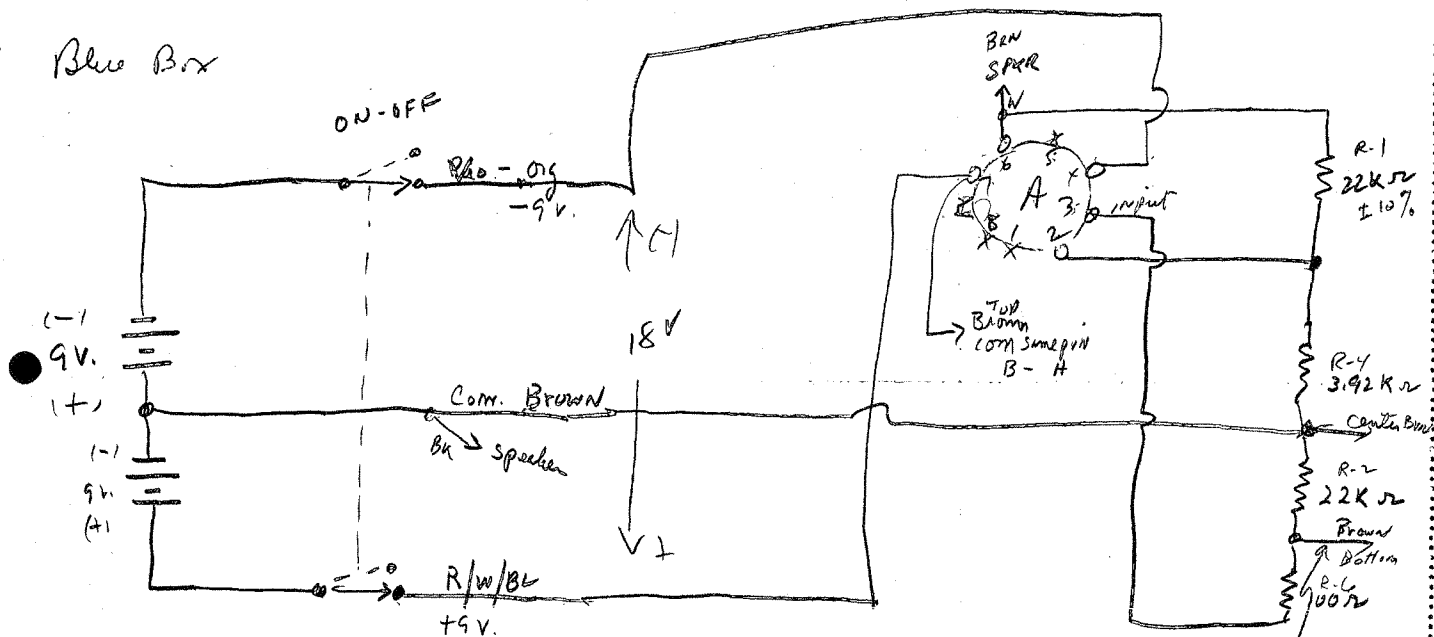 Blue Box
ON-OFF
-org
-9v.
(-)
(-)
9V.
(+)
18V
Com. BROWN
BK
Speaker
(-)
9V.
(+)
+
R/W/BL
+9V.
BRN
SPKR
6
5
A
3
input
2
1
8
Brown
com same pin
B - A
R-1
22K Ω
±10%
R-4
3.92K Ω
Center Brow
R-2
22K Ω
Brown
Bottom
R-6
100Ω